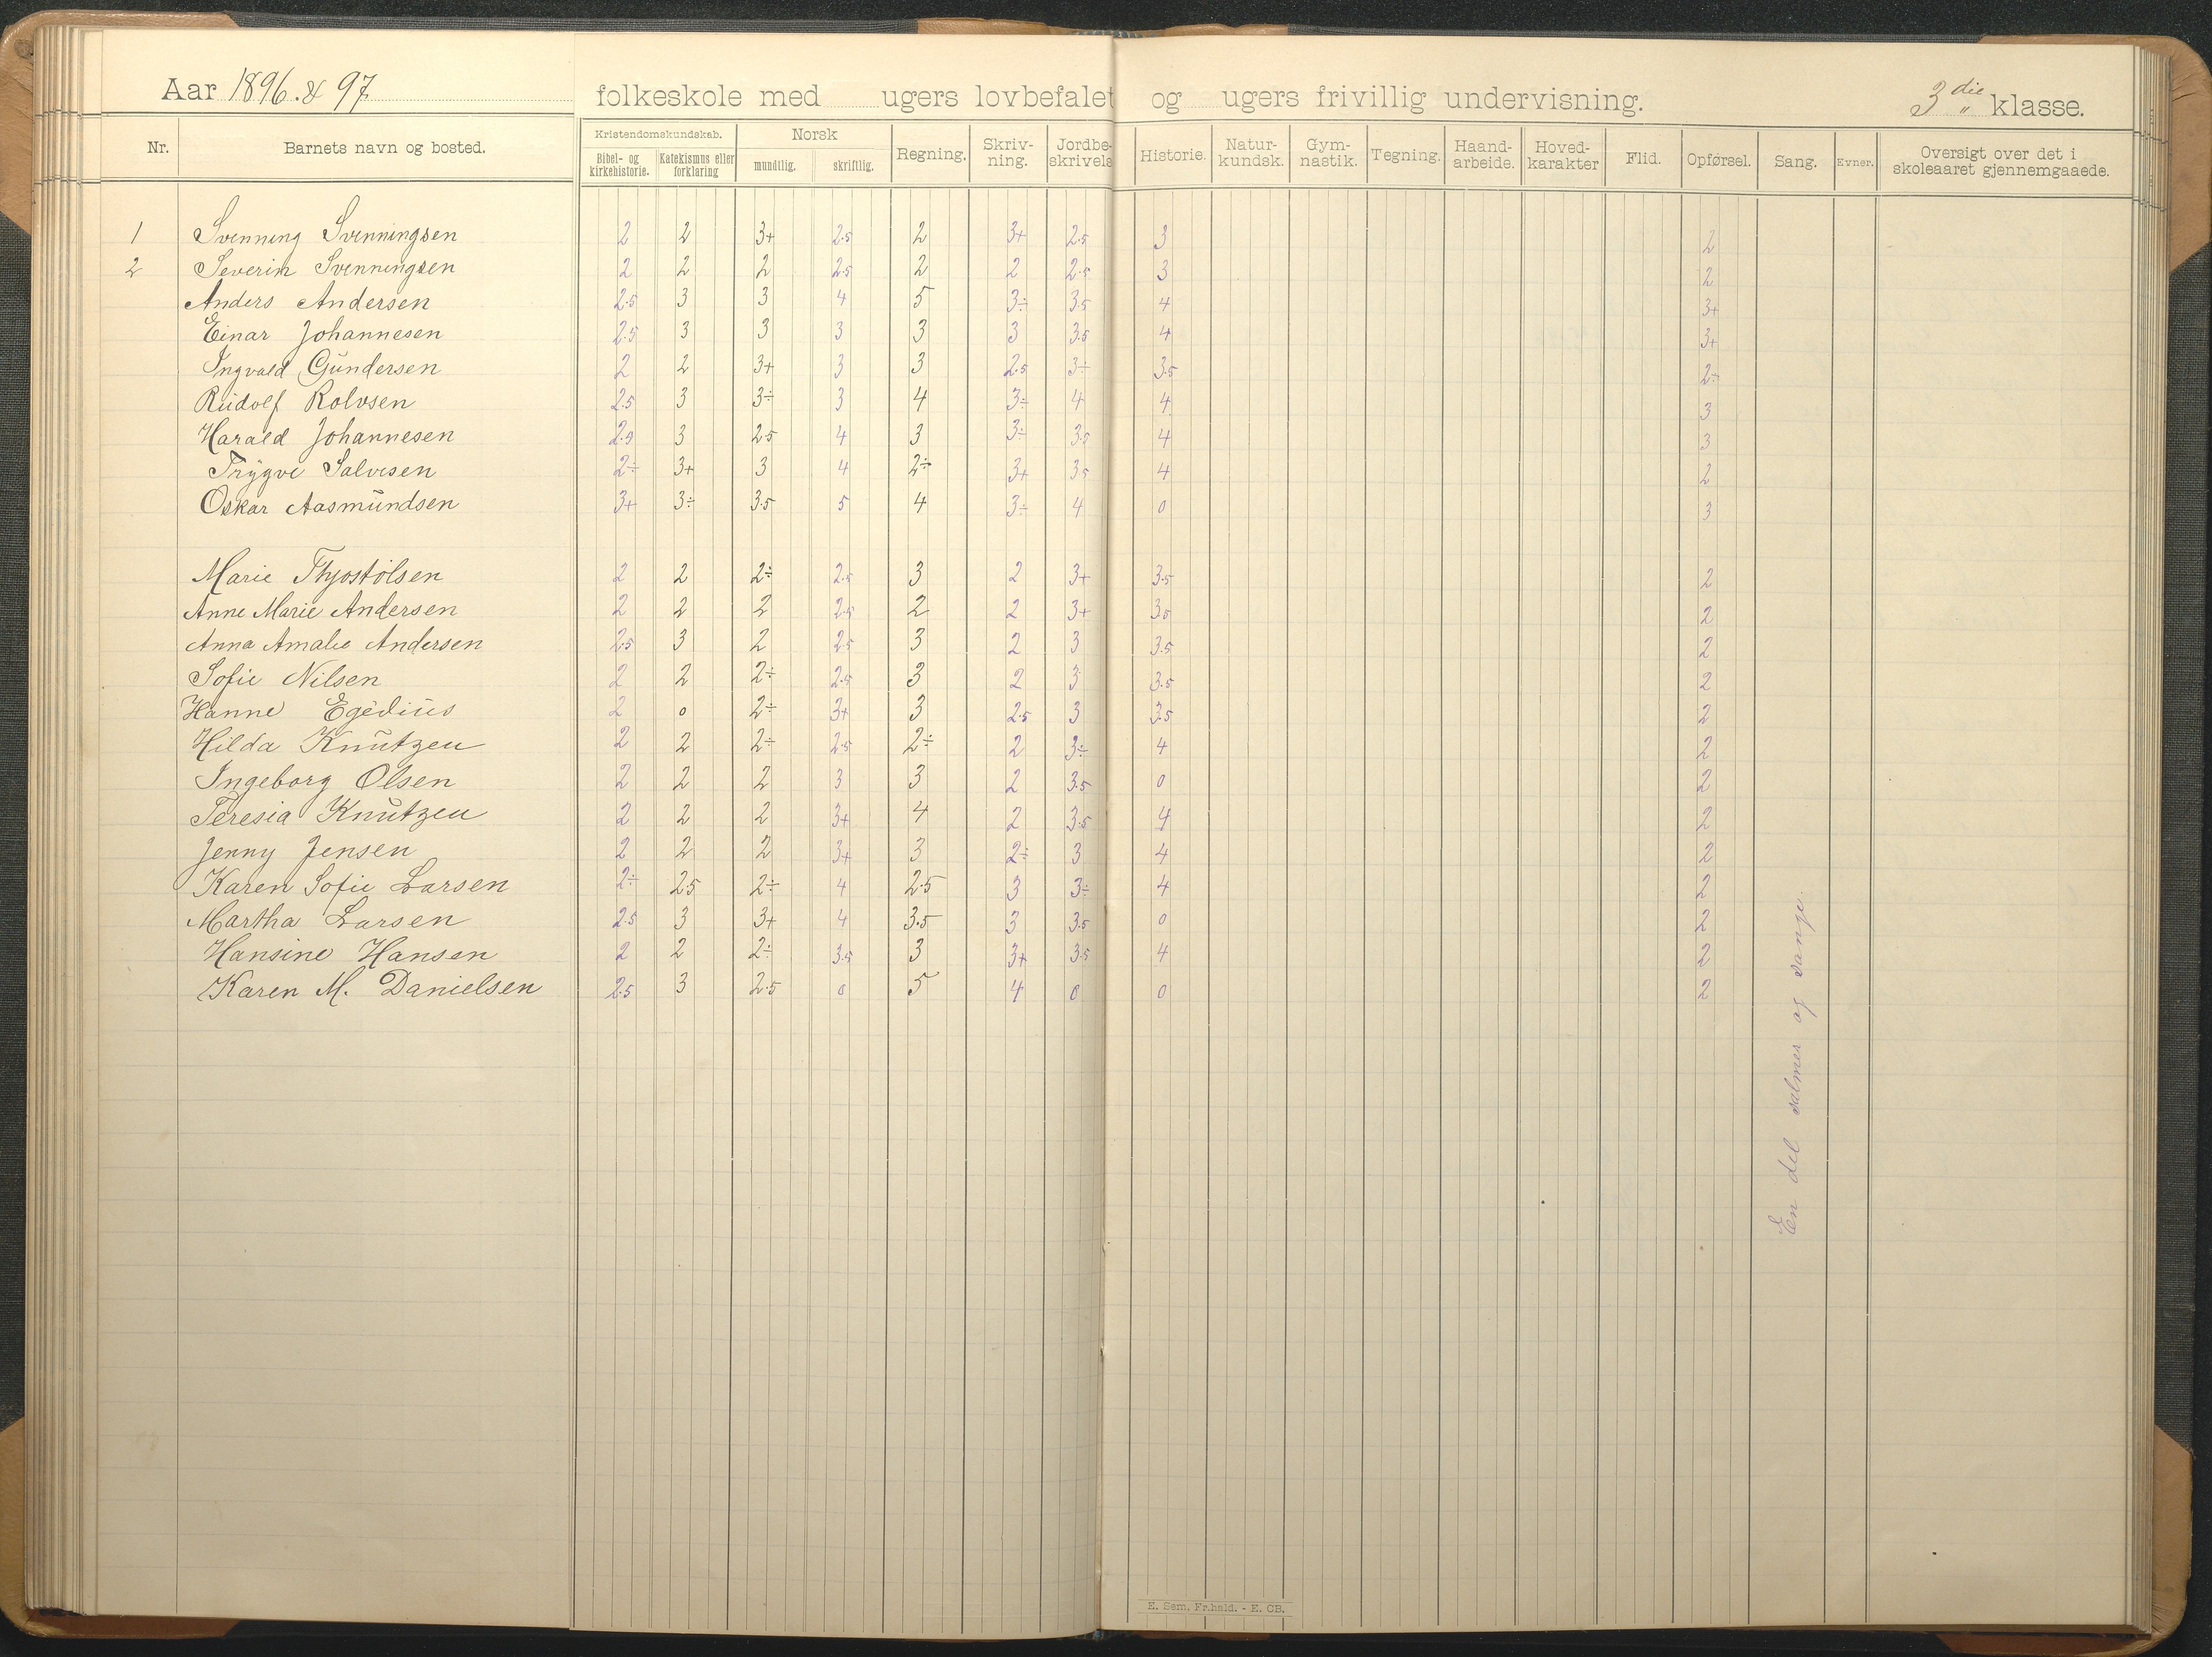 Aar 1896. & 97 folkeskole med ugers lovbefalet og ugers frivillig undervisning. 3die klasse.
Nr. Barnets navn og bosted. Kristendomskundskab. Bibel- og kirkehistorie. Katekismus eller forklaring Norsk mundtlig. skriftlig. Regning. Skriv-ning. Jordbe-skrivels Historie. Natur-kundsk. Gym-nastik. Tegning. Haand-arbeide. Hoved-karakter Flid. Opførsel. Sang. Evner. Oversigt over det i skoleaaret gjennemgaaede.
1 Svenning Svenningsen 2 2 3+ 2.5 2 3+ 2.5 3 2
2 Severin Svenningsen 2 2 2 2.5 2 2 2.5 3 2
Anders Andersen 2.5 3 3 4 5 3÷ 3.5 4 3+
Einar Johannesen 2.5 3 3 3 3 3 3.5 4 3+
Ingvald Gundersen 2 2 3+ 3 3 2.5 3÷ 3.5 2÷
Rudolf Rolvsen 2.5 3 3÷ 3 4 3÷ 4 4 3
Harald Johannesen 2.5 3 2.5 4 3 3÷ 3.5 4 3
Trygve Salvesen 2÷ 3+ 3 4 2÷ 3+ 3.5 4 2
Oskar Aasmundsen 3+ 3÷ 3.5 5 4 3÷ 4 0 3
Marie Thjostølsen 2 2 2÷ 2.5 3 2 3+ 3.5 2
Anne Marie Andersen 2 2 2 2.5 2 2 3+ 3.5 2
Anna Amalie Andersen 2.5 3 2 2.5 3 2 3 3.5 2
Sofie Nilsen 2 2 2÷ 2.5 3 2 3 3.5 2
Hanne Egedius 2 0 2÷ 3+ 3 2.5 3 3.5 2
Hilda Knutzen 2 2 2÷ 2.5 2÷ 2 3÷ 4 2
Ingeborg Olsen 2 2 2 3 3 2 3.5 0 2
Teresia Knutzen 2 2 2 3+ 4 2 3.5 4 2
Jenny Jensen 2 2 2 3+ 3 2÷ 3 4 2
Karen Sofie Larsen 2÷ 2.5 2÷ 4 2.5 3 3÷ 4 2
Martha Larsen 2.5 3 3+ 4 3.5 3 3.5 0 2
Hansine Hansen 2 2 2÷ 3.5 3 3+ 3.5 4 2
Karen M. Danielsen 2.5 3 2.5 0 5 4 0 0 2
En del salmer og sange.
E. Sem, Fr.hald. - E. CB.